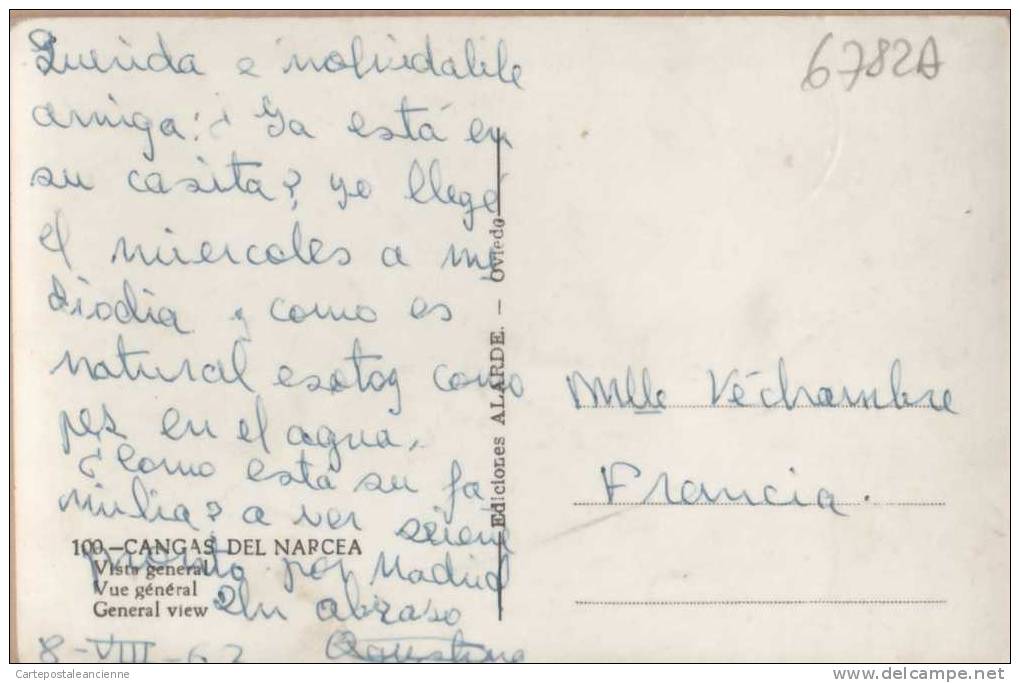 Querida e inolvidable
amiga: ¿Ya está en
su casita? yo llegé
el miercoles a me
diodia y como es
natural esotoy como
pez en el agua.
¿Como está su fa
milia? a ver si viene
pronto por Madrid
Un abrazo
Agustina
8-VIII-62
100.-CANGAS DEL NARCEA
Vista general
Vue général
General view
Ediciones ALARDE. - Oviedo
6782A
Mlle Véchambre
Francia.
Cartepostaleancienne
www.delcampe.net